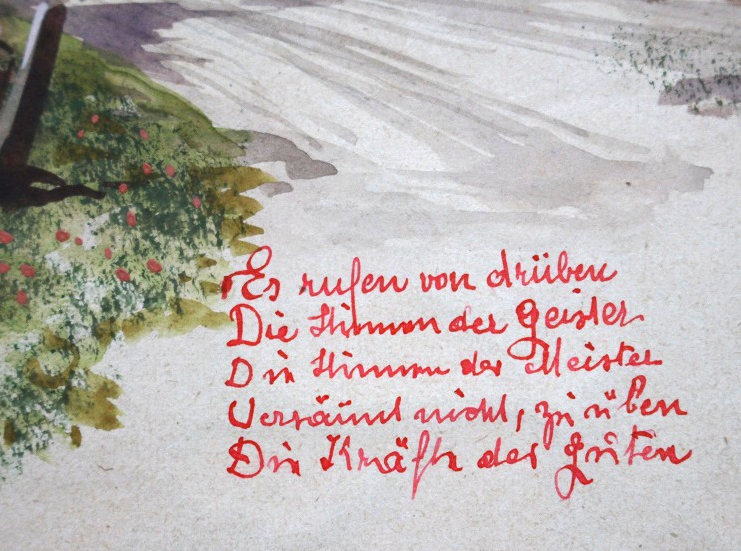 Es rufen von drüben
Die Stimmen der Geister
Die Stimmen der Meister
Versäumt nicht, zu üben
Die Kräfte der Guten